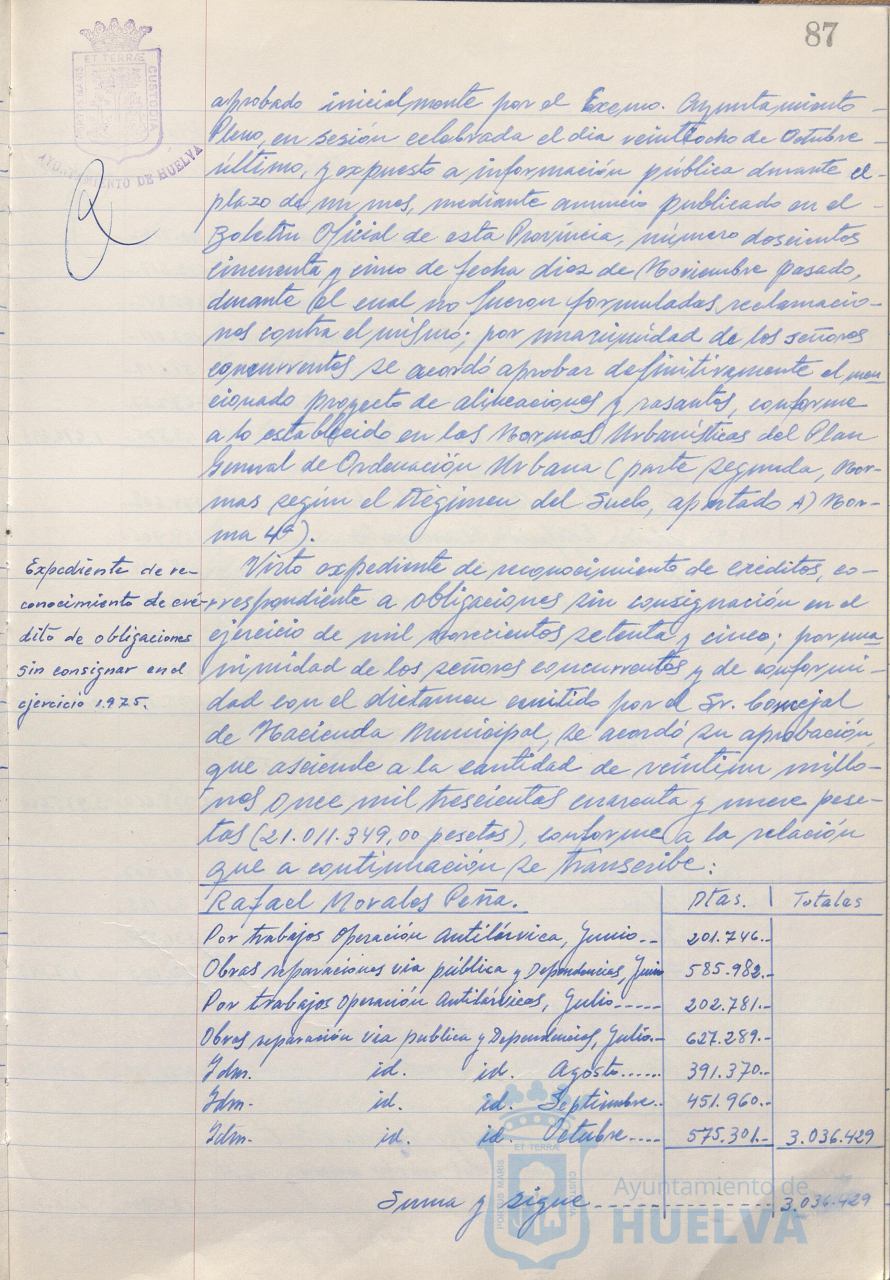 87
ET TERRÆ
PORTUS MARIS
CUSTODIA
AYUNTAMIENTO DE HUELVA
aprobado inicialmente por el Excmo. Ayuntamiento
Pleno, en sesión celebrada el dia veintiocho de Octubre
último, y expuesto a información pública durante el
plazo de un mes, mediante anuncio publicado en el
Boletín Oficial de esta Provincia, número doscientos
cincuenta y cinco de fecha diez de Noviembre pasado,
durante el cual no fueron formuladas reclamacio-
nes contra el mismo; por unanimidad de los señores
concurrentes se acordó aprobar definitivamente el men
cionado proyecto de alineaciones y rasantes, conforme
a lo establecido en las Normas Urbanísticas del Plan
General de Ordenación Urbana (parte segunda, Nor-
mas según el Régimen del Suelo, apartado A) Nor-
ma 4ª).
Expediente de re-
conocimiento de cré-
dito de obligaciones
sin consignar en el
ejercicio 1.975.
Visto expediente de reconocimiento de créditos, co-
rrespondiente a obligaciones sin consignación en el
ejercicio de mil novecientos setenta y cinco; por una
nimidad de los señores concurrentes y de conformi-
dad con el dictamen emitido por el Sr. Concejal
de Hacienda Municipal, se acordó su aprobación,
que asciende a la cantidad de veintiun millo-
nes once mil trescientas cuarenta y nueve pese-
tas (21.011.349,00 pesetas), conforme a la relación
que a continuación se transcribe:
Rafael Morales Peña. Ptas. Totales
Por trabajos Operación Antilárvica, Junio.-- 201.746.-
Obras reparaciones via pública y Dependencias, Junio 585.982.-
Por trabajos Operación Antilárvicas, Julio----- 202.781.-
Obras reparación via publica y Dependencias, Julio.- 627.289.-
Idm. id. id. Agosto...... 391.370.-
Idm. id. id. Septiembre.. 451.960.-
Idm. id. id. Octubre.---- 575.301.- 3.036.429
Suma y sigue ---------------- 3.036.429
ET TERRÆ
PORTUS MARIS
CUSTODIA
Ayuntamiento de
HUELVA